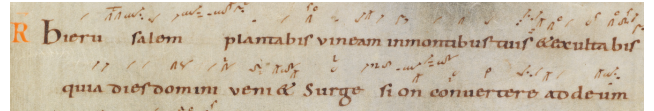 R hieru salem plantabis vineam inmontibus tuis & exultabis
quia dies domini veni& Surge sion convertere addeum